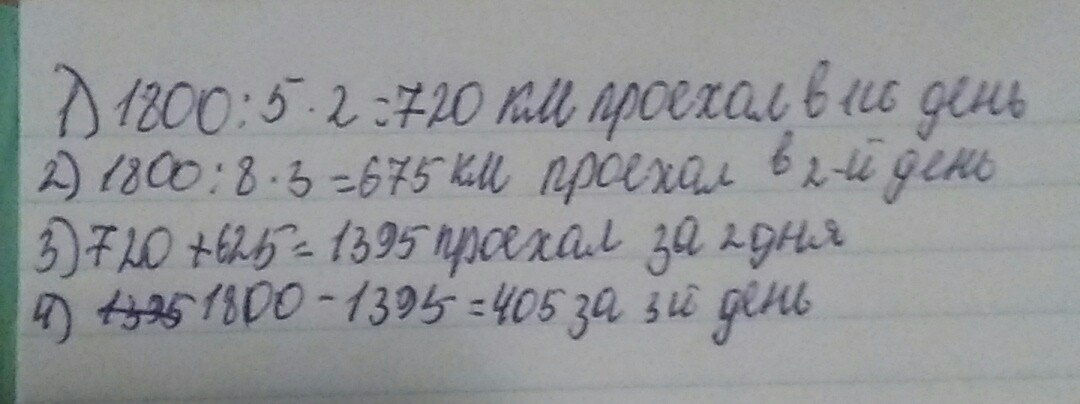 1) 1800:5·2=720 км проехал в 1ый день
2) 1800:8·3=675 км проехал в 2-й день
3) 720+625=1395 проехал за 2 дня
4) 1395 1800-1395=405 за 3й день